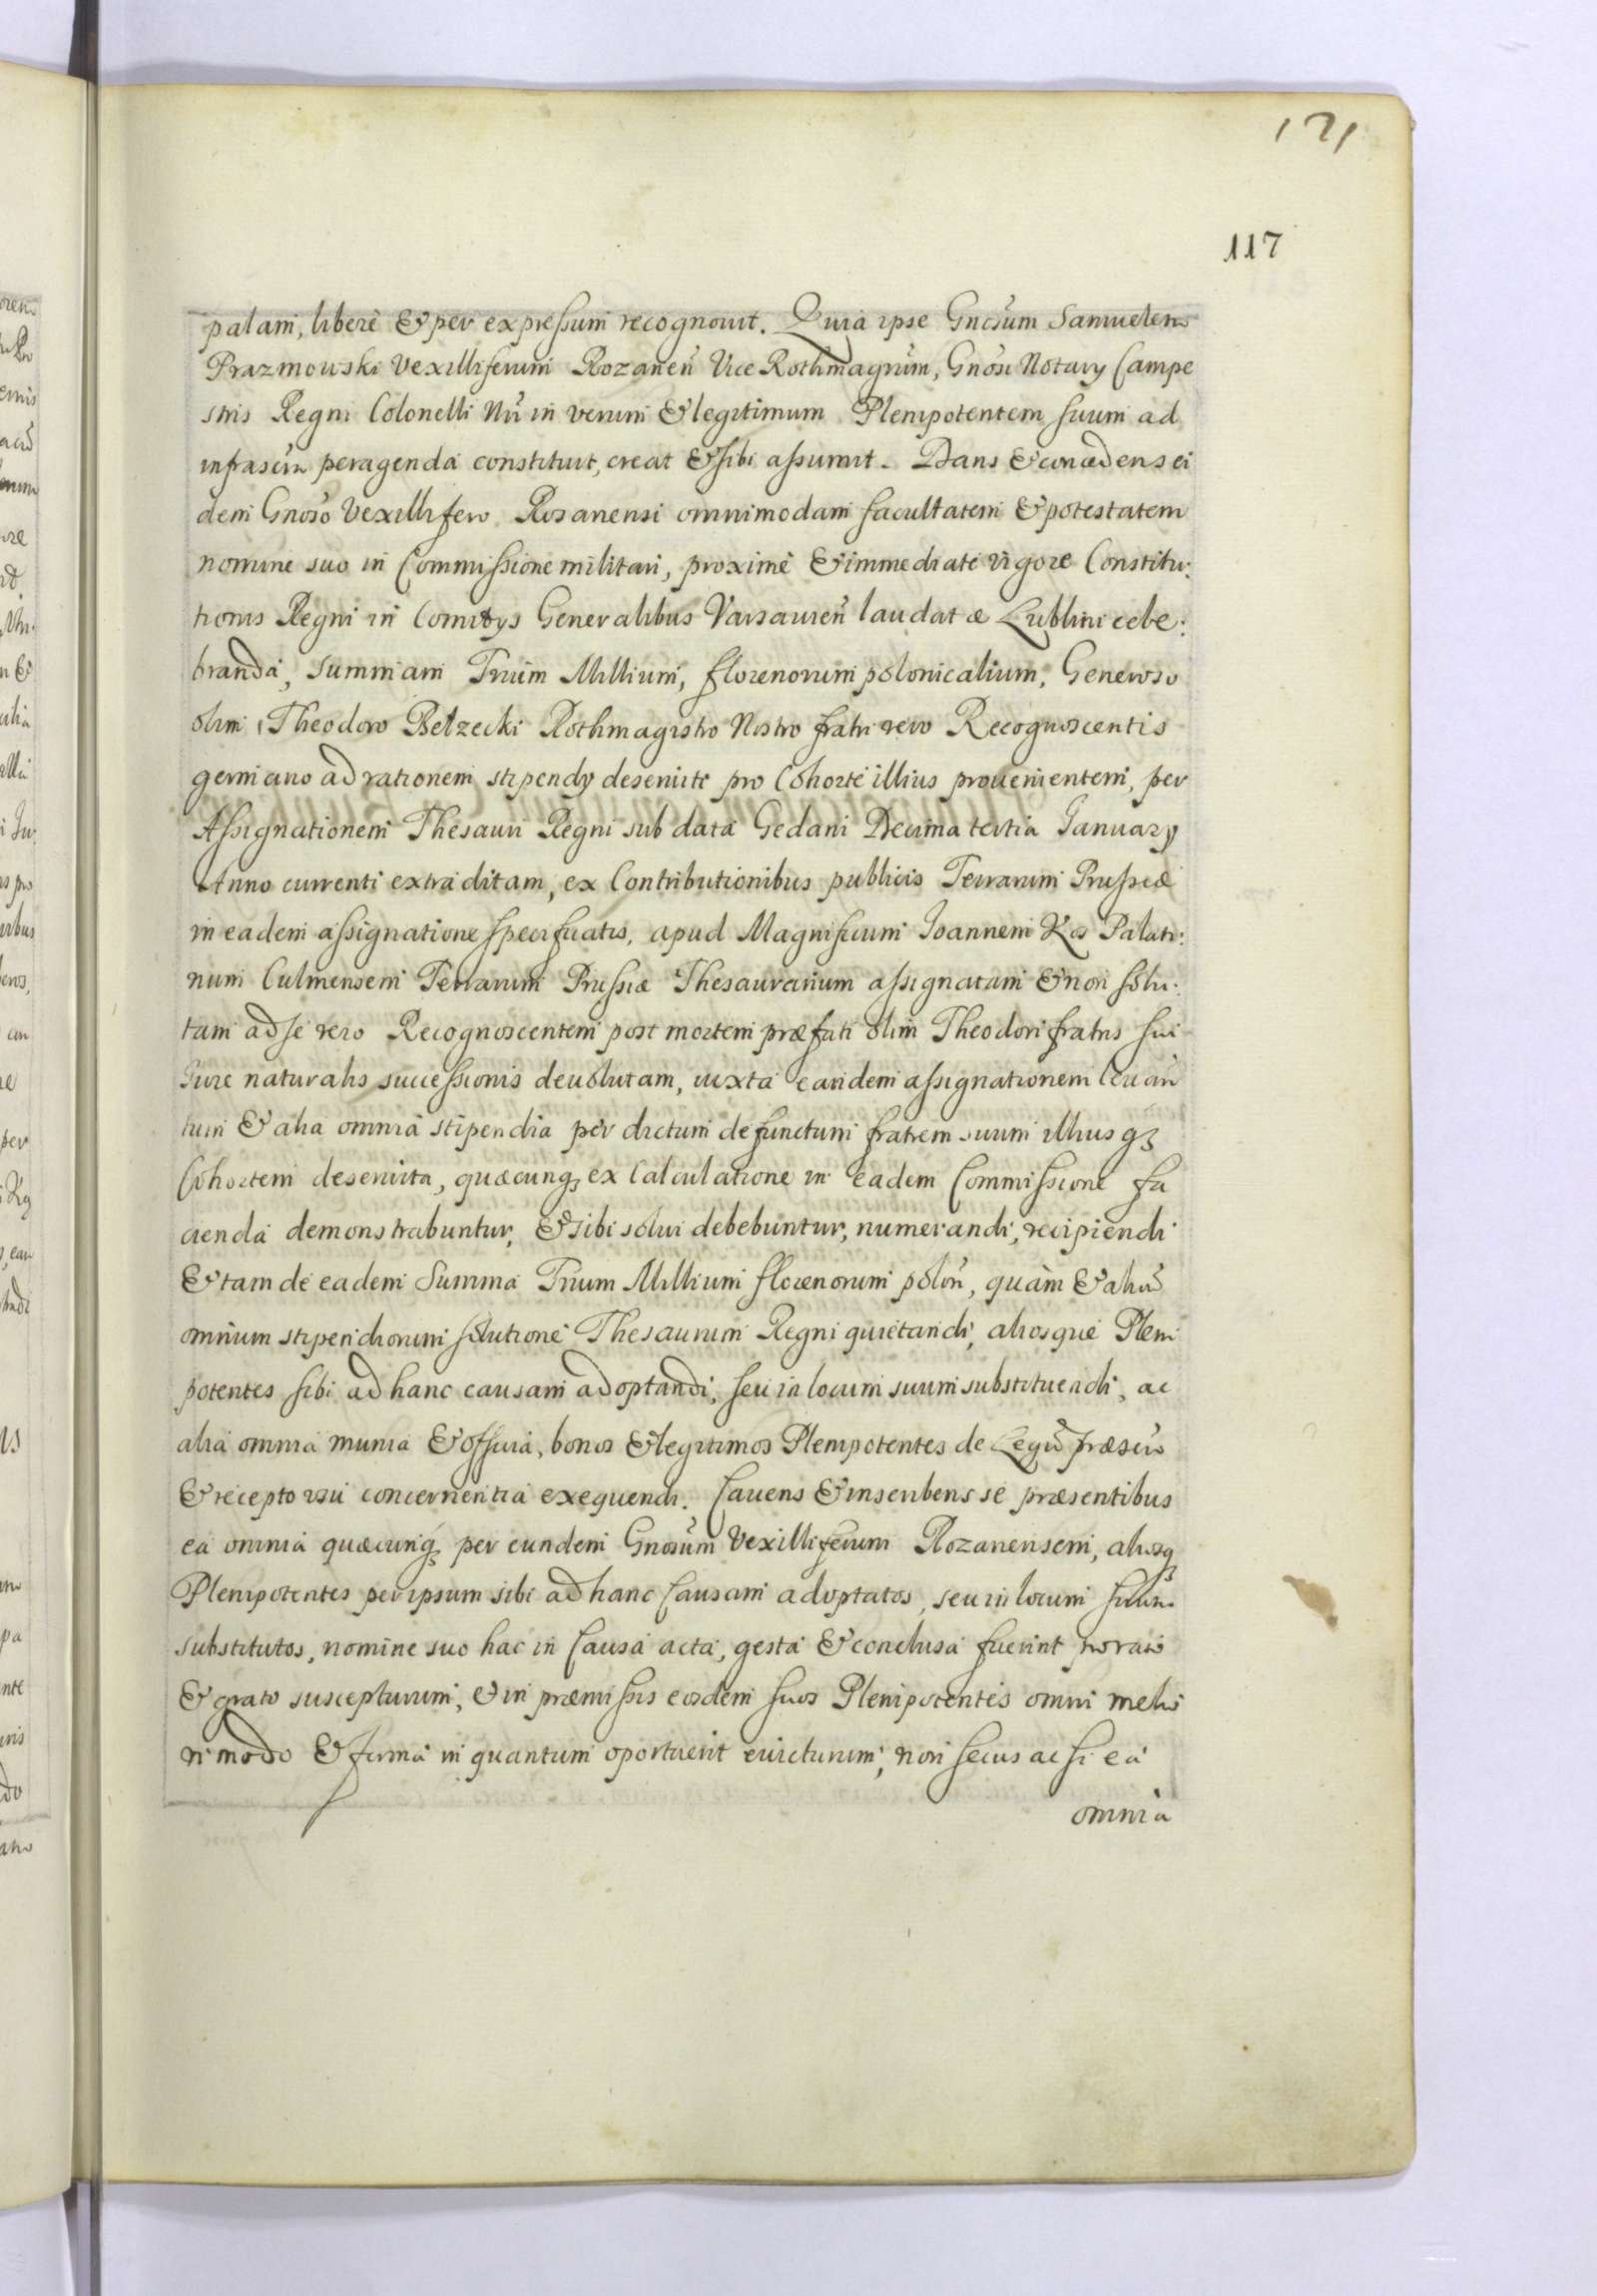 121
117
palam, liberè & per expressum recognouit. Quia ipse Gnosum Samuelem
Prazmowski Vexilliferum Rozaneñ Vice Rothmagrum, Gnosi Notary Campe
stris Regni Colonelli Nri in verum & legitimum Plenipotentem suum ad
infrascrõ peragenda constituit, creat & sibi assumit. Dans & concedens ei
dem Gnoso Vexillifero Rosanensi omnimodam facultatem & potestatem
nomine suo in Commissione militari, proximè & immediatè vigore Constitu:
tionis Regni in Comitys Generalibus Varsauieñ laudatæ Lublini cele:
branda, summam Trium Millium, florenorum polonicalium, Generoso
olim Theodoro Bełzecki Rothmagistro Nostro fratri vero Recognoscentis
germano ad rationem stipendy deseruiti pro Cohorte illius prouenientem, per
Assignationem Thesauri Regni sub data Gedani Decima tertia January
Anno currenti extraditam, ex Contributionibus publicis Terrarum Prussiæ
in eadem assignatione specificatis, apud Magnificum Joannem Kos Palati:
num Culmensem Terrarum Prussiæ Thesaurarium assignatam & non solu:
tam ad se vero Recognoscentem post mortem præfati olim Theodori fratris sui
Jure naturalis successionis deuolutam, iuxta eandem assignationem leuan
tum & alia omnia stipendia per dictum defunctum fratrem suum illiusq3
Cohortem deseruita, quæcunq3 ex Calculatione in eadem Commissione fa
cienda demonstrabuntur, & sibi solui debebuntur, numerandi, recipiendi
& tam de eadem Summa Trium Millium florenorum poloñ, quàm & aliorũ
omnium stipendiorum solutione Thesaurum Regni quietandi, aliosque Pleni
potentes sibi ad hanc causam adoptandi, seu in locum suum substituendi, ac
alia omnia munia & officia, bonos & legitimos Plenipotentes de Legũ præscrõ
& recepto usu concernentia exequendi. Cauens & inscribens se præsentibus
ea omnia quæcunq3 per eundem Gnosum Vexilliferum Rozanensem, aliosq3
Plenipotentes per ipsum sibi ad hanc Causam adoptatos, seu in locum suum
substitutos, nomine suo hac in Causa acta, gesta & conclusa fuerint pro rato
& grato suscepturum, & in præmissis eosdem suos Plenipotentes omni melio
ri modo & forma in quantum oportuerit euicturum, non secus ac si ea
omnia